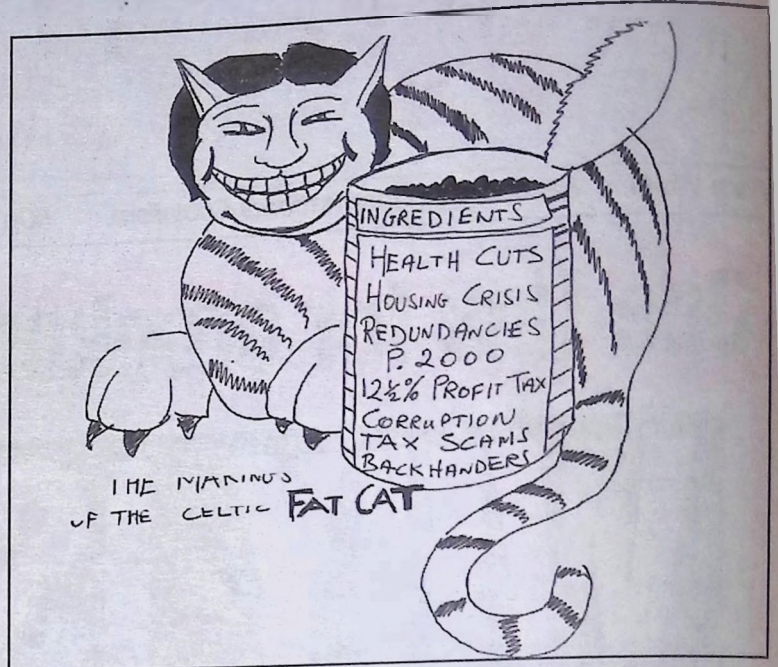 INGREDIENTS
HEALTH CUTS
HOUSING CRISIS
REDUNDANCIES
P. 2000
12½% PROFIT TAX
CORRUPTION
TAX SCAMS
BACKHANDERS
THE MAKINGS
OF THE CELTIC FAT CAT